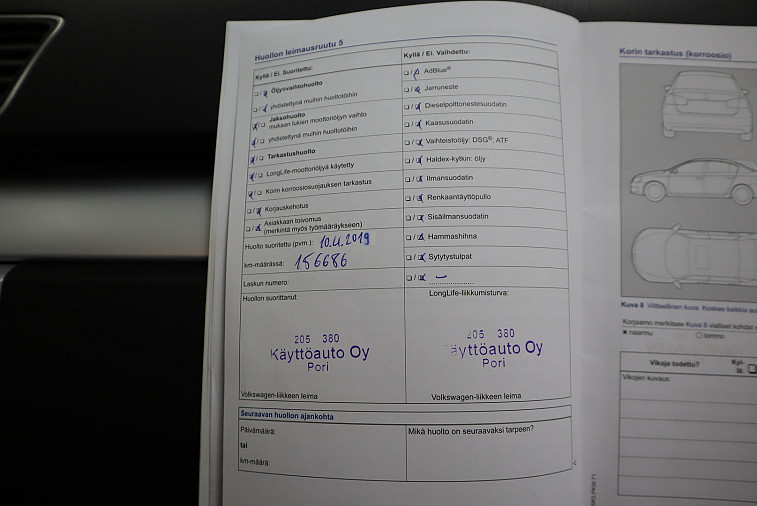 Huollon leimausruutu 5
Kyllä / Ei. Suoritettu:
Öljynvaihtohuolto
yhdistettynä muihin huoltotöihin
Jaksohuolto
mukaan lukien moottoriöljyn vaihto
yhdistettynä muihin huoltotöihin
Tarkastushuolto
LongLife-moottoriöljyä käytetty
Korin korroosiosuojauksen tarkastus
Korjauskehotus
Asiakkaan toivomus
(merkintä myös työmääräykseen)
Huolto suoritettu (pvm.):
km-määrässä: 156686
Laskun numero:
Huollon suorittanut:
205 380
Käyttöauto Oy
Pori
Volkswagen-liikkeen leima
Kyllä / Ei. Vaihdettu:
AdBlue®
Jarruneste
Dieselpolttonestesuodatin
Kaasusuodatin
Vaihteistoöljy: DSG®, ATF
Haldex-kytkin: öljy
Ilmansuodatin
Renkaantäyttöpullo
Sisäilmansuodatin
Hammashihna
Sytytystulpat
LongLife-liikkumisturva:
205 380
Käyttöauto Oy
Pori
Volkswagen-liikkeen leima
Seuraavan huollon ajankohta
Päivämäärä:
tai
km-määrä:
Mikä huolto on seuraavaksi tarpeen?
Korin tarkastus (korroosio)
Kuva 8 Viitteellinen kuva. Koskee kaikkia
Korjaamo merkitsee Kuva 8 vialliset kohdat
naarmu
Vikoja todettu?
Kyl-
lä:
Vikojen kuvaus: